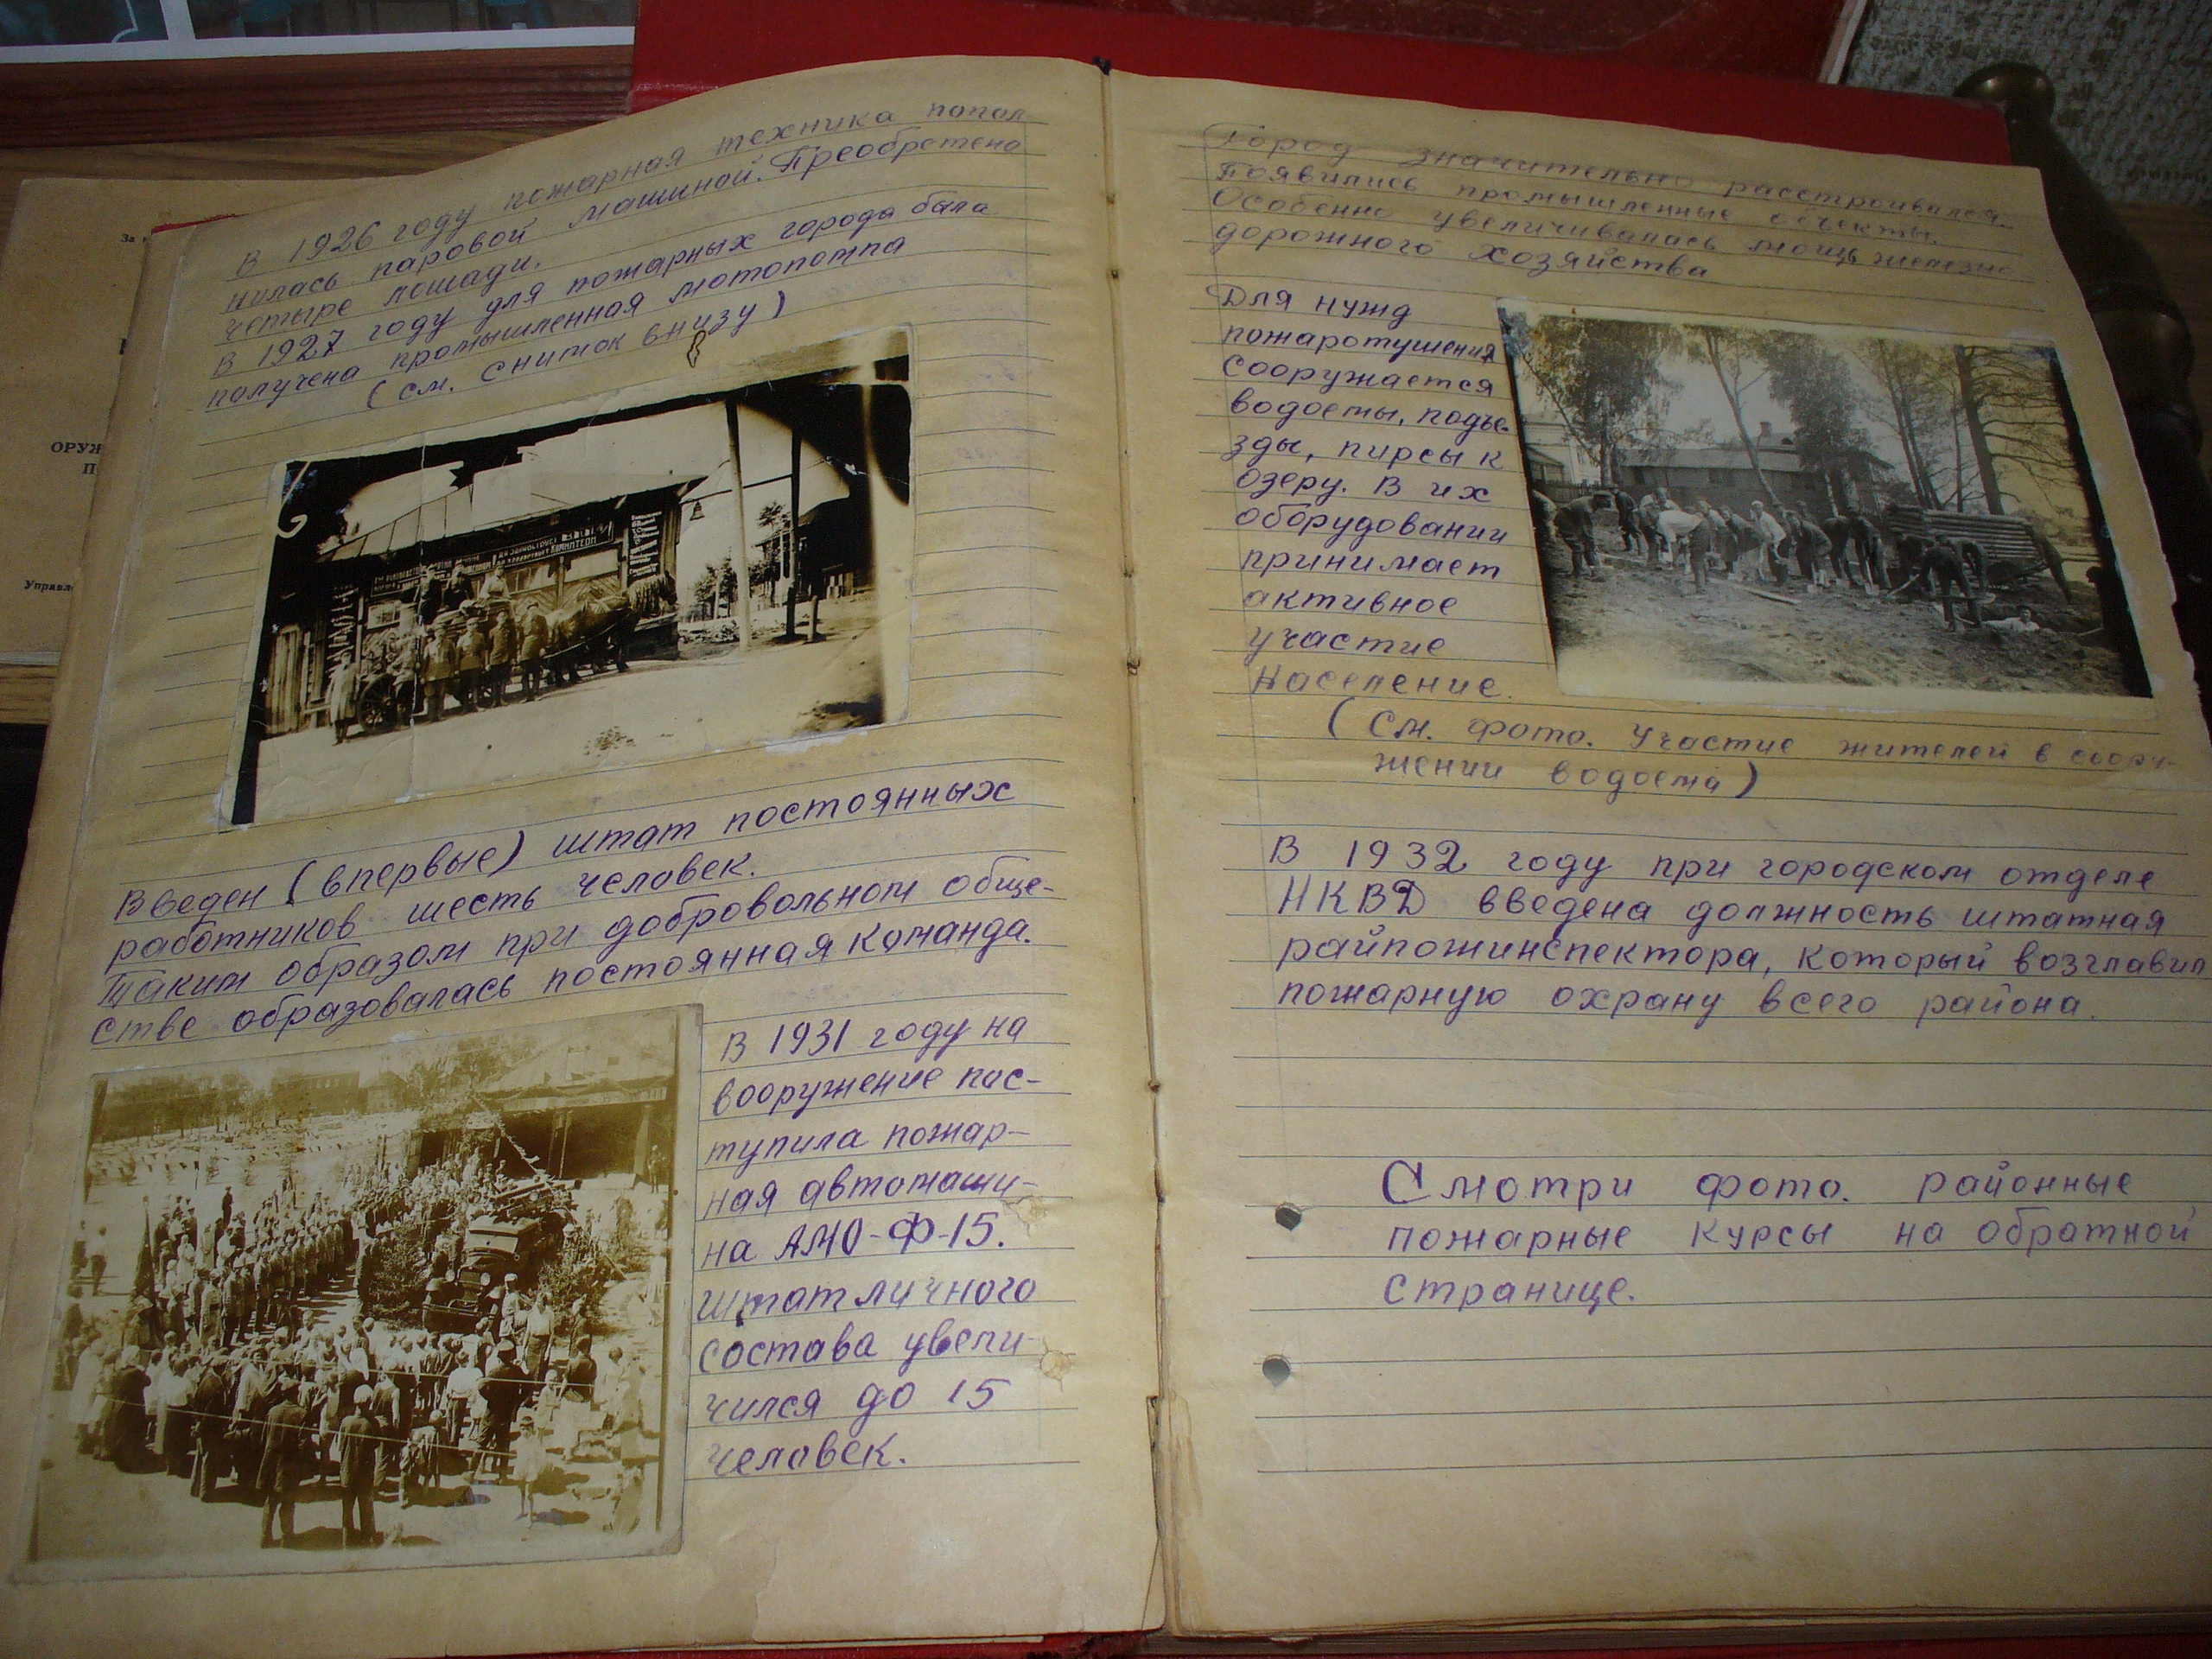 В 1926 году пожарная техника попол
нилась паровой машиной. Преобретена
четыре лошади.
В 1927 году для пожарных города бала
получена промышленная мотопомпа
(см. снимок внизу)
Введен (впервые) штат постоянных
работников шесть человек.
Таким образом при добровольном обще-
стве образовалась постоянная команда.
В 1931 году на
вооружение пос-
тупила пожар-
ная автомаши-
на АМО-Ф-15.
Штат личного
состава увели-
чился до 15
человек.
Город значительно расстроивался.
Появились промышленные объекты.
Особенно увеличивалась мощь железно
дорожного хозяйства
Для нужд
пожаротушения
сооружается
водоемы, подъе-
зды, пирсы к
озеру. В их
оборудовании
принимает
активное
участие
население.
(См. фото. Участие жителей в соору-
жении водоема)
В 1932 году при городском отделе
НКВД введена должность штатная
райпожинспектора, который возглавил
пожарную охрану всего района.
Смотри фото. районные
пожарные курсы на обратной
странице.
За
ОРУЖ
П
Управл